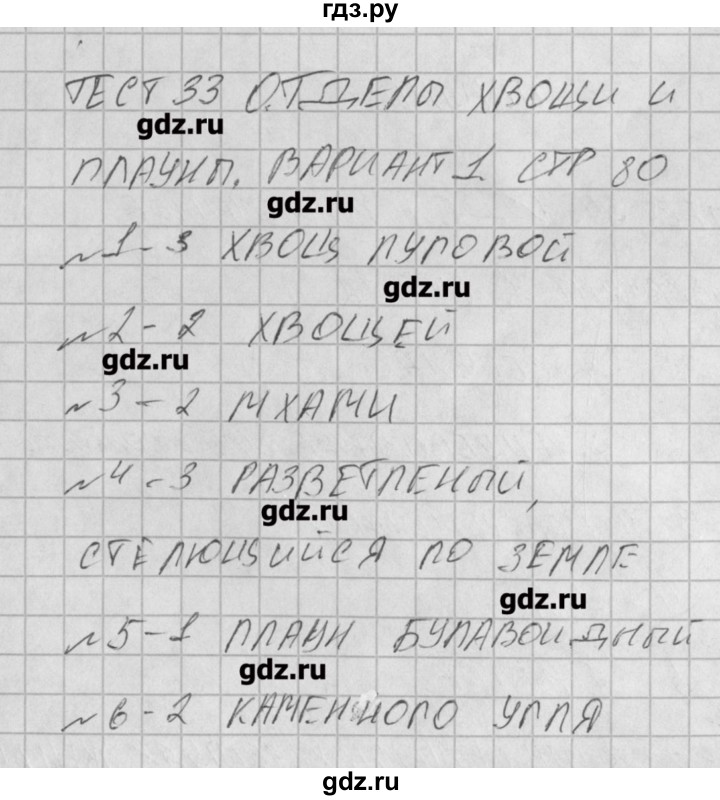 гдз.ру
ТЕСТ 33 ОТДЕЛЫ ХВОЩИ И
gdz.ru
ПЛАУНЫ. ВАРИАНТ 1 СТР 80
gdz.ru
№1-3 ХВОЩ ЛУГОВОЙ
gdz.ru
№2-2 ХВОЩЕЙ
gdz.ru
№3-2 МХАМИ
№4-3 РАЗВЕТЛЕНЫЙ,
gdz.ru
СТЕЛЮЩИЙСЯ ПО ЗЕМЛЕ
gdz.ru
№5-1 ПЛАУН БУЛАВОИДНЫЙ
gdz.ru
№6-2 КАМЕННОГО УГЛЯ
gdz.ru